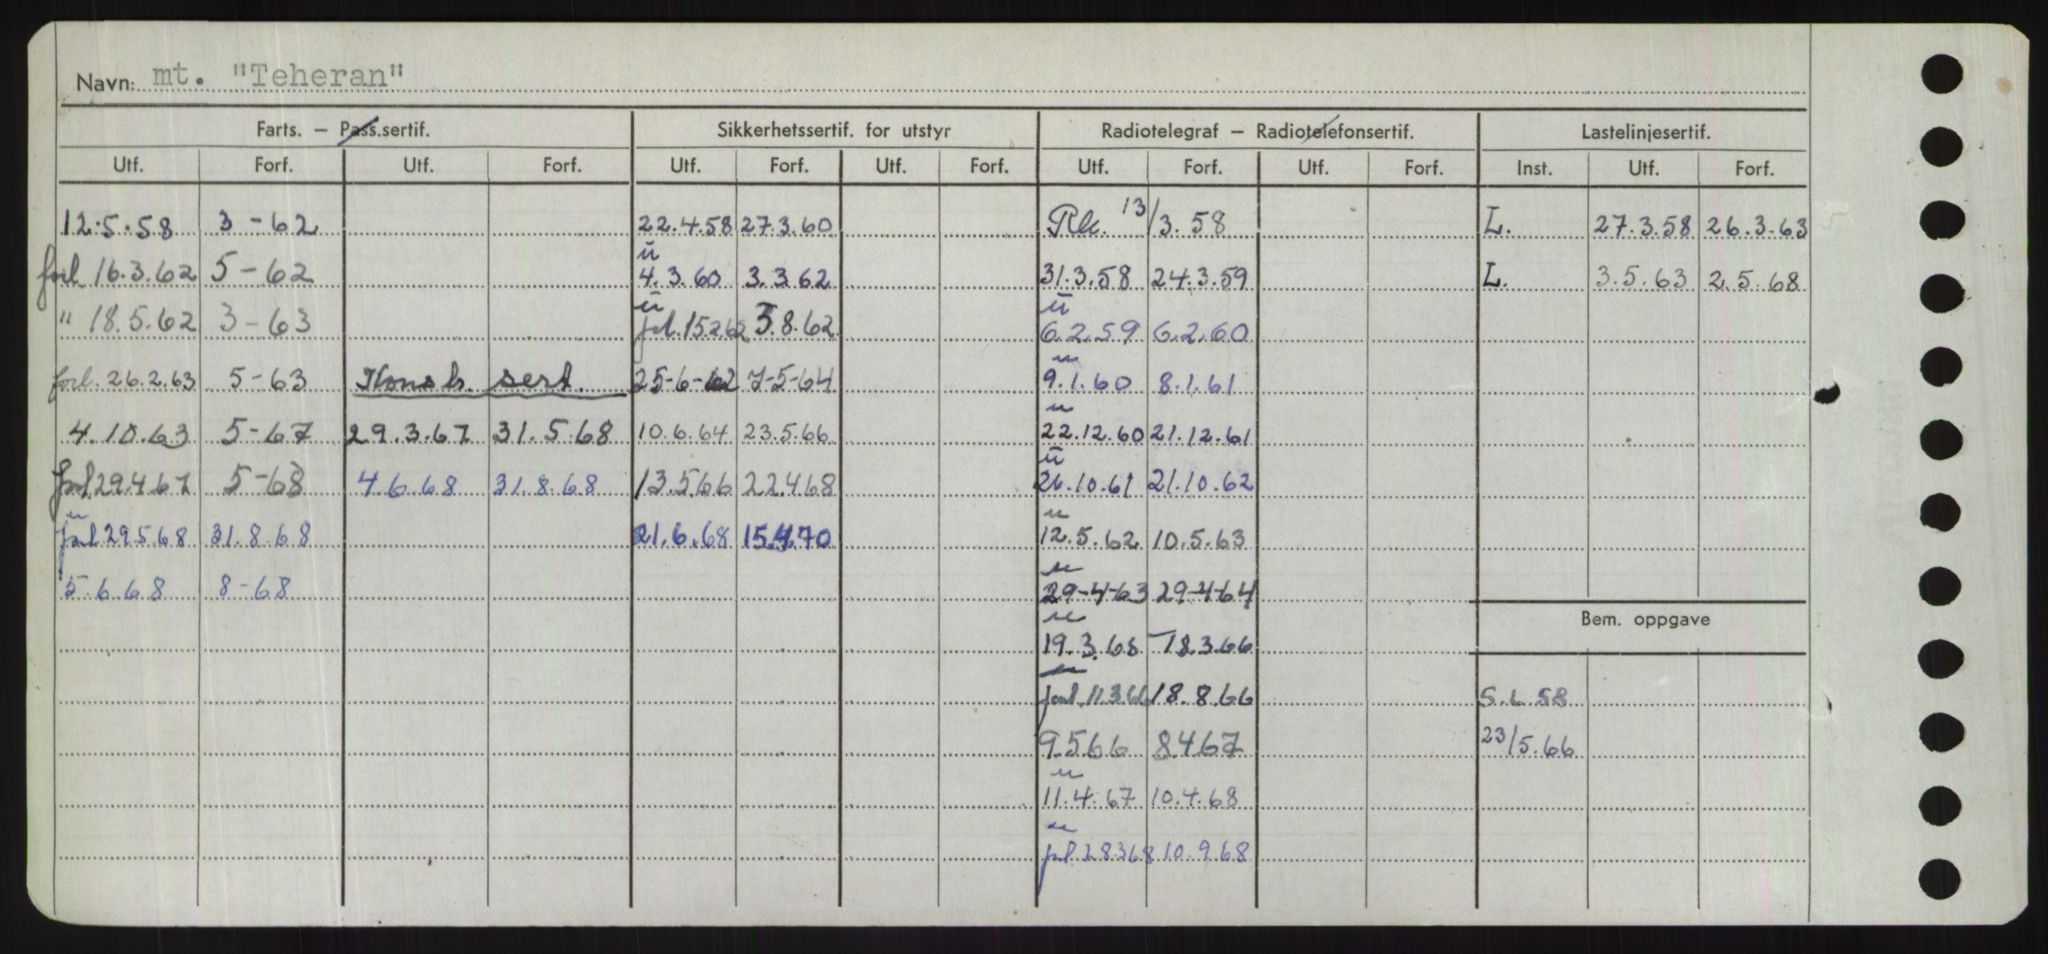 Navn: mt. "Teheran"
Farts. – Pass.sertif. Sikkerhetssertif. for utstyr Radiotelegraf – Radiotelefonsertif. Lastelinjesertif.
Utf. Forf. Utf. Forf. Utf. Forf. Utf. Forf. Utf. Forf. Utf. Forf. Inst. Utf. Forf.
12.5.58 3-62 22.4.58 27.3.60 13/3.58 L. 27.3.58 26.3.63
forl 16.3.62 5-62 4.3.60 3.3.62 31.3.58 24.3.59 L. 3.5.63 2.5.68
" 18.5.62 3-63 forl. 15.2.62 3.8.62 6.2.59 6.2.60
forl. 26.2.63 5-63 Konst. sert. 25-6-62 7-5-64 9.1.60 8.1.61
4.10.63 5-67 29.3.67 31.5.68 10.6.64 23.5.66 22.12.60 21.12.61
forl 29.4.67 5-68 4.6.68 31.8.68 13.5.66 22.4.68 26.10.61 21.10.62
forl 29.5.68 31.8.68 21.6.68 15.4.70 12.5.62 10.5.63
5.6.68 8-68 29-4-63 29-4-64
Bem. oppgave
19.3.65 18.3.66
forl. 11.3.66 18.8.66
9.5.66 8.4.67 23/5.66
11.4.67 10.4.68
forl. 28.3.68 10.9.68